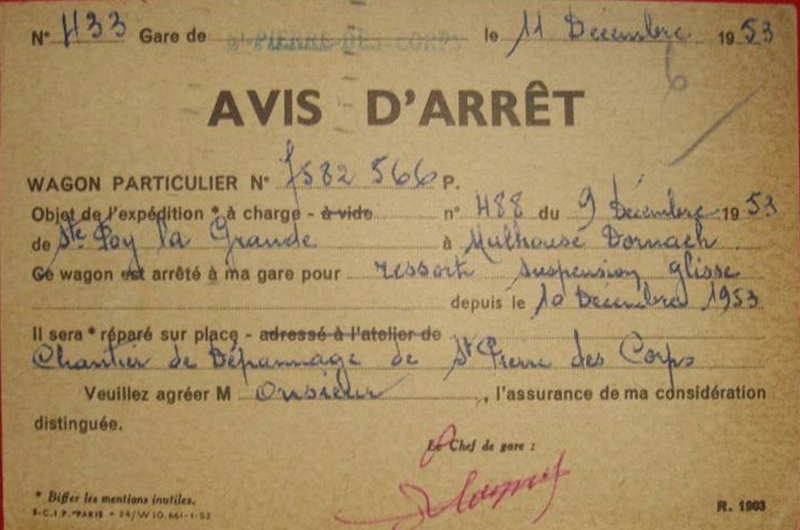 N° 433 Gare de St-PIERRE-DES-CORPS le 11 Décembre 1953
6
AVIS D'ARRÊT
WAGON PARTICULIER N° 7582 566 P.
Objet de l'expédition * à charge - à vide n° 488 du 9 Décembre 1953
de Ste Foy la Grande à Mulhouse Dornach.
Ce wagon est arrêté à ma gare pour ressort suspension glissé
depuis le 10 Décembre 1953
Il sera * réparé sur place - adressé à l'atelier de
Chantier de Dépannage de St Pierre des Corps
Veuillez agréer Monsieur, l'assurance de ma considération
distinguée.
Le Chef de gare :
* Biffer les mentions inutiles.
S.C.I.P. PARIS * 24/W 10.661-1-52
R. 1903